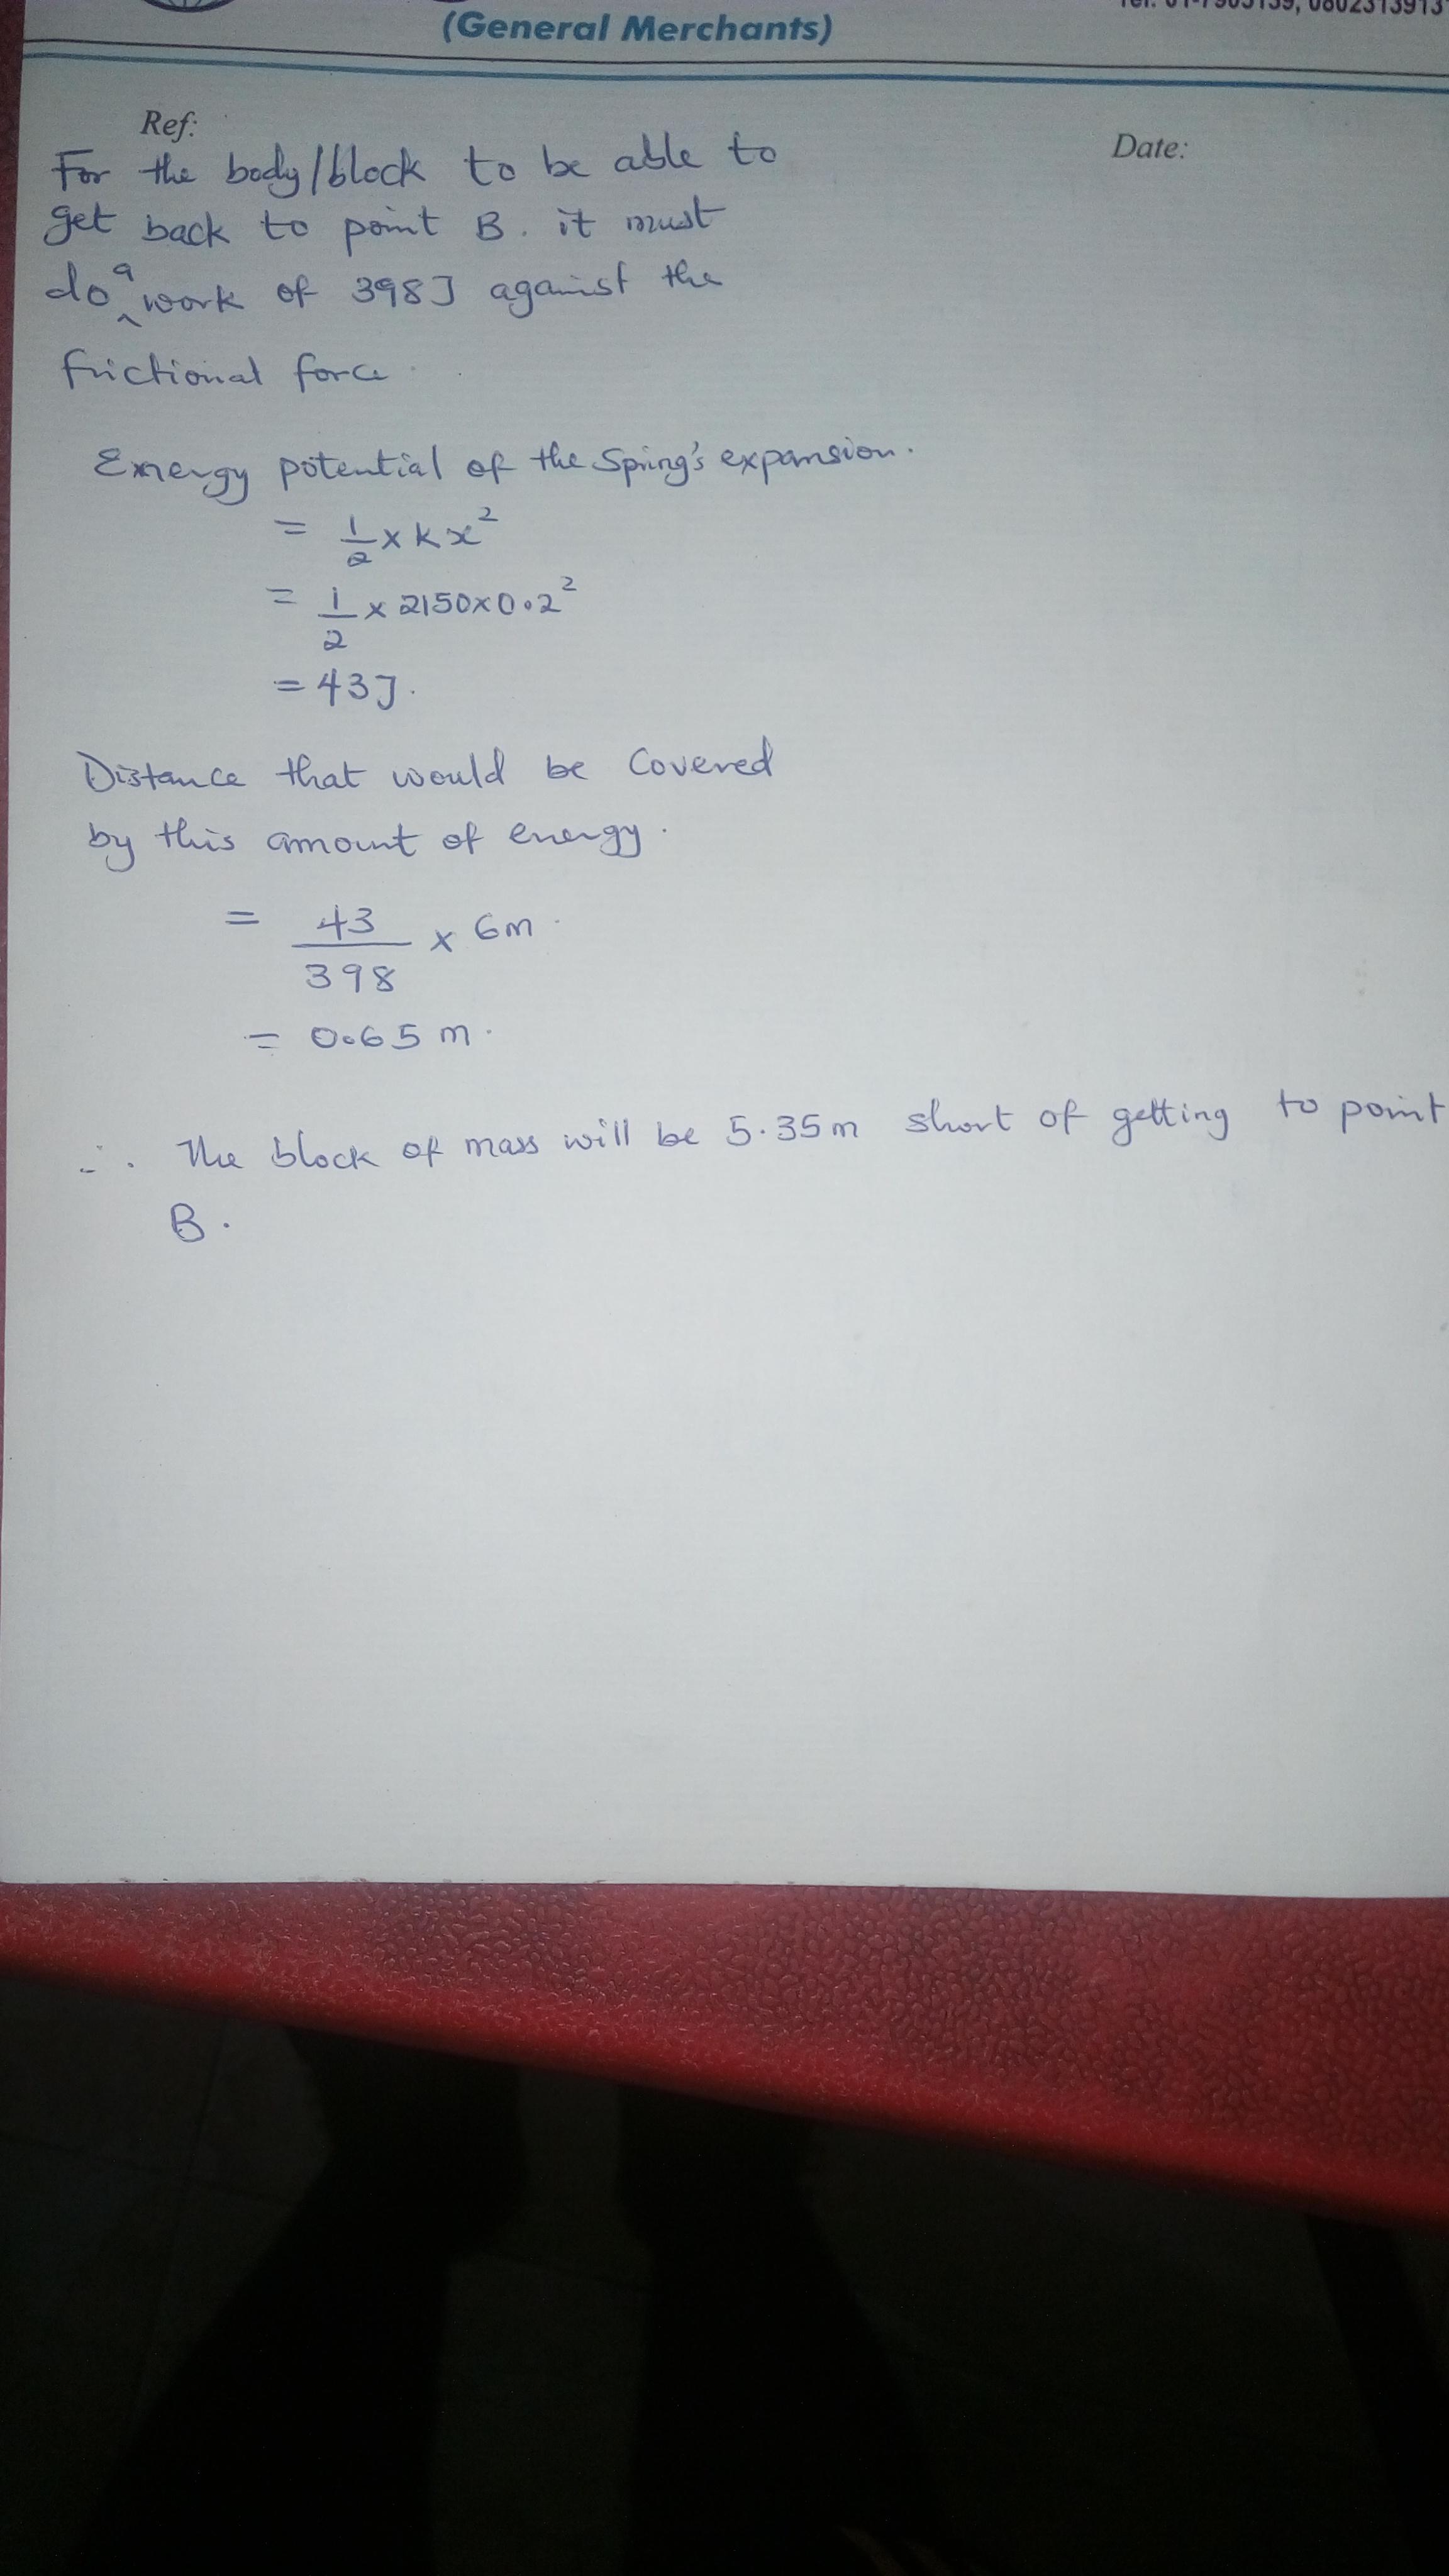 (General Merchants)
Ref:
Date:
For the body/block to be able to
get back to point B. it must
do a work of 398J against the
frictional force
Energy potential of the Spring's expansion.
= 1/2 x kx²
= 1/2 x 2150x0.2²
= 43J.
Distance that would be covered
by this amount of energy.
= 43/398 x 6m
= 0.65 m.
∴ The block of mass will be 5.35m short of getting to point
B.